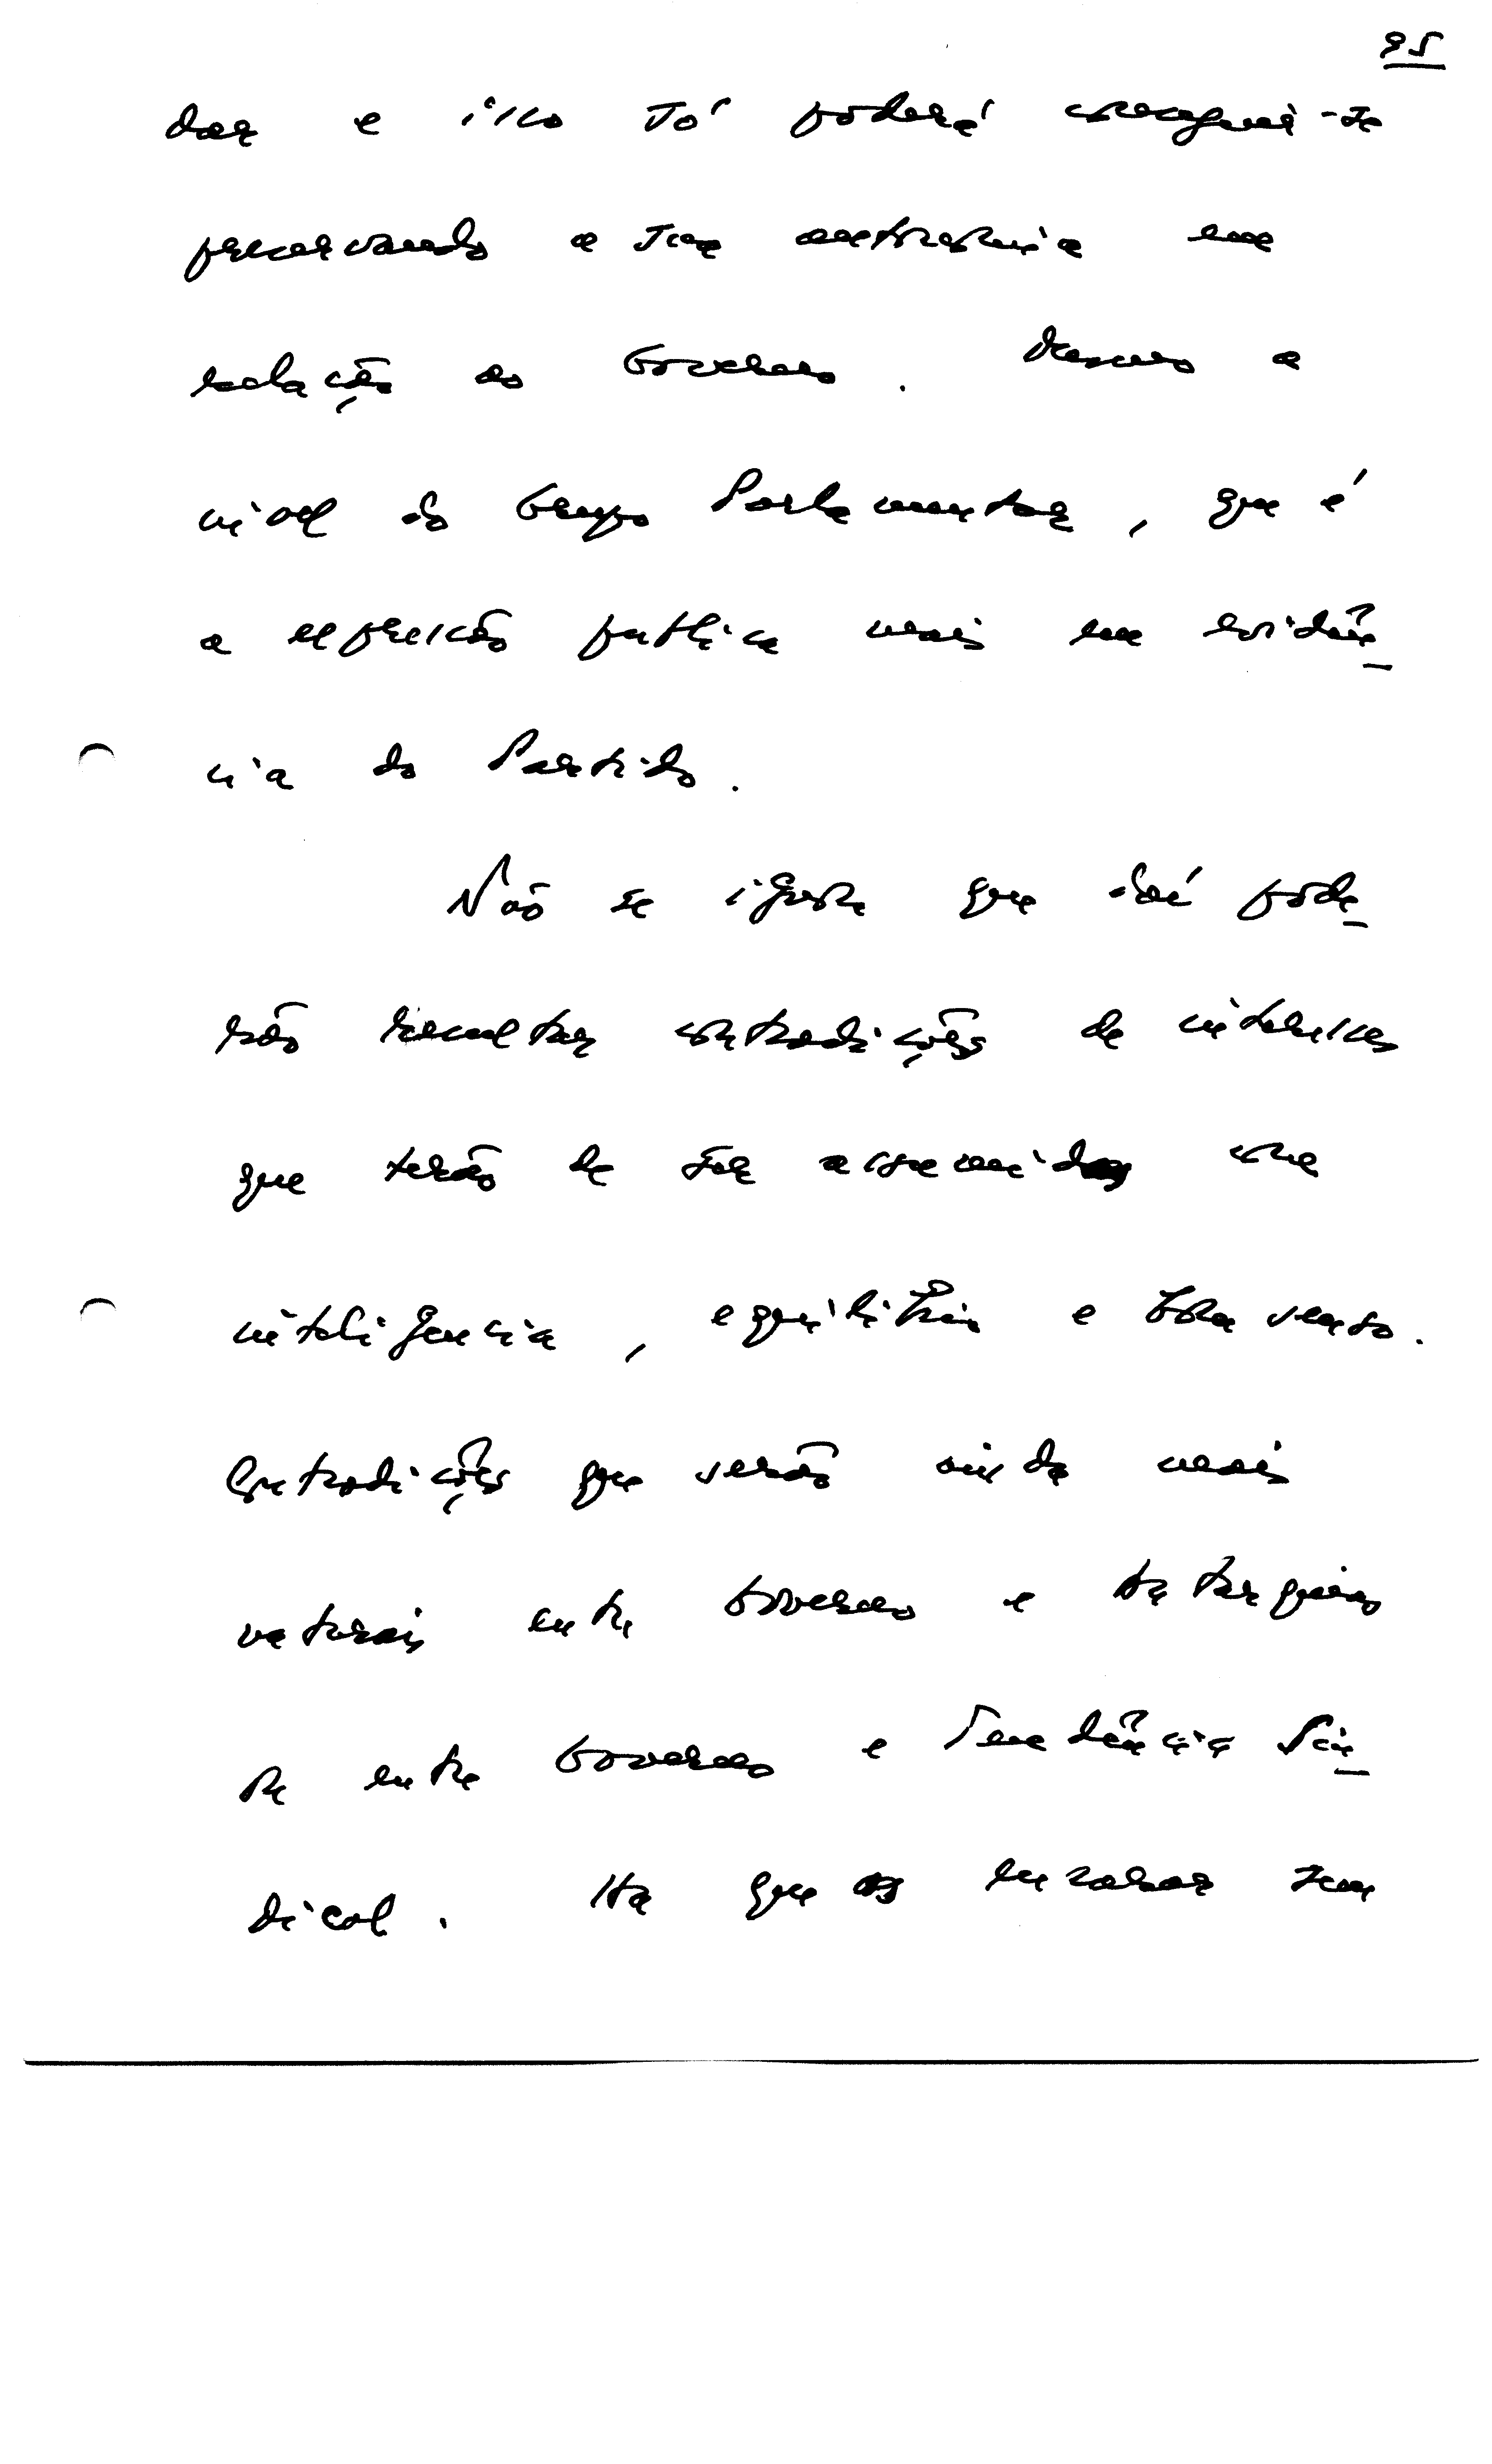 95
dar e isso só poderá conseguir-se
preservando a sua autonomia em
relação ao Governo. Mesmo a
nível do Grupo Parlamentar, que é
a expressão publica mais em evidên
cia do Partido.
Não se ignora que daí pode
rão resultar contradições de interesses
que terão de ser assumidas com
inteligencia, equilíbrio e bom senso.
Contradições que serão ainda mais
naturais entre Governo e Autarquias
ou entre Governo e Tendência Sin
dical. Há que as encarar sem